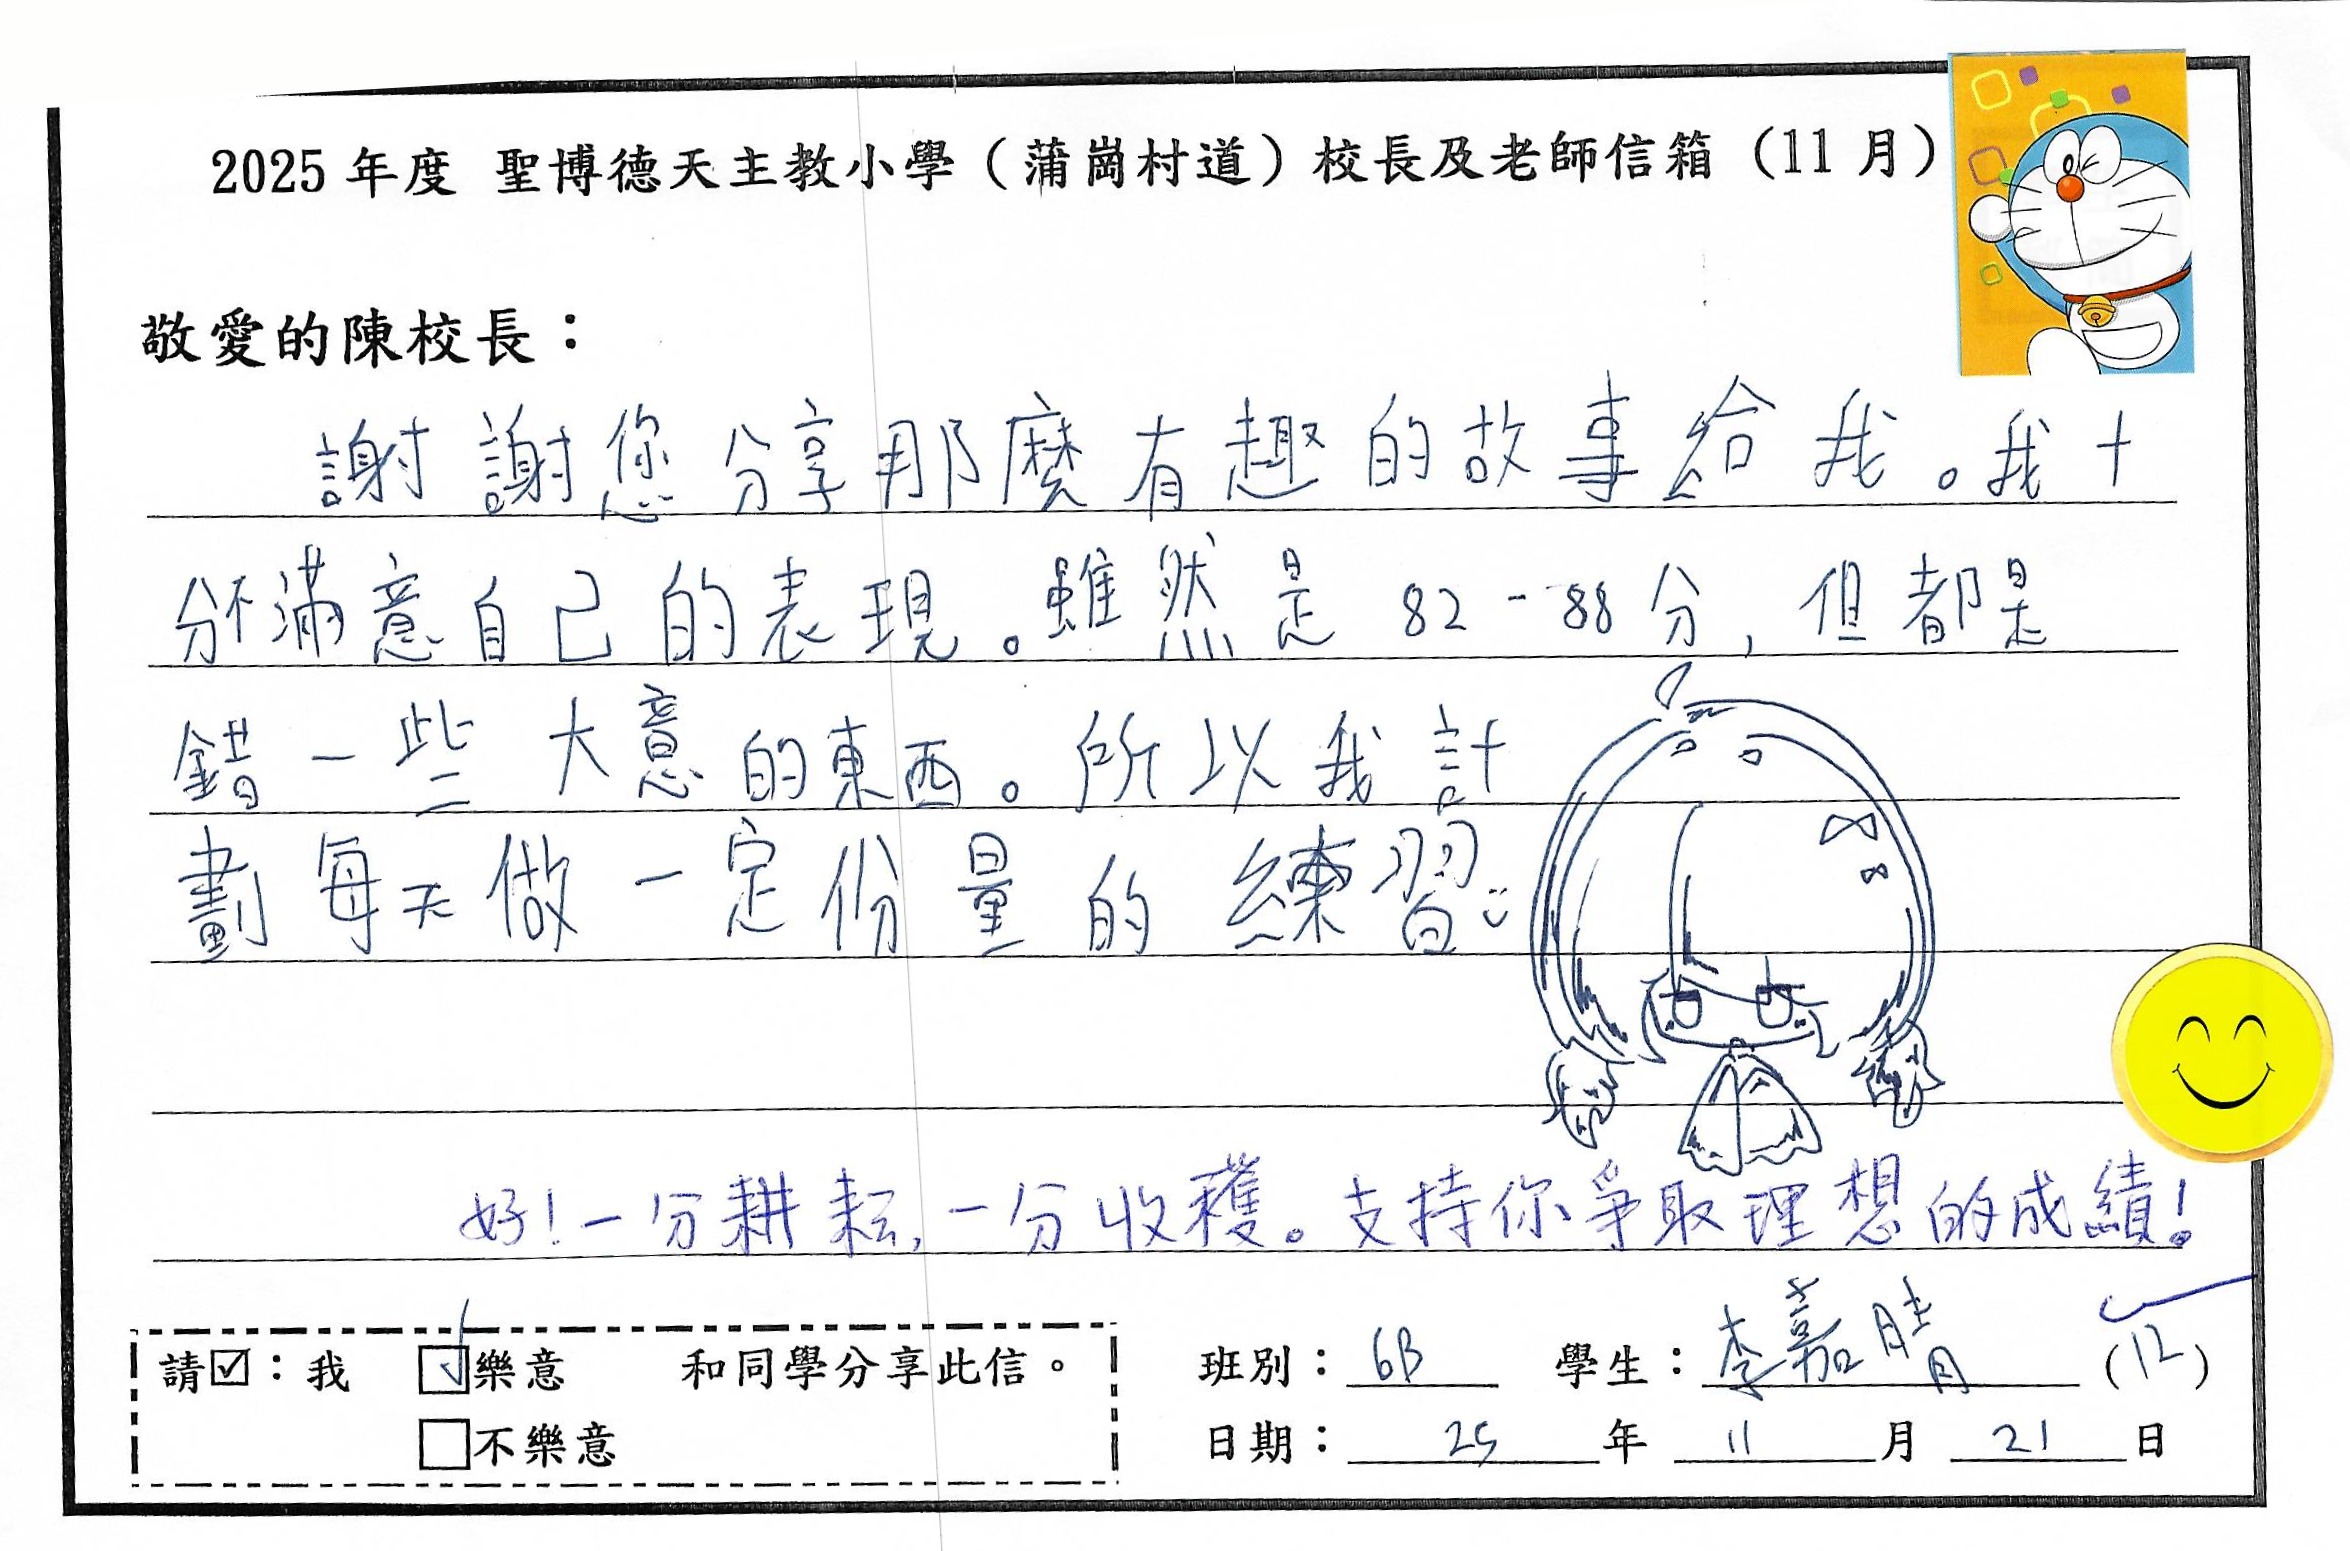 2025 年度 聖博德天主教小學（蒲崗村道）校長及老師信箱（11 月）
敬愛的陳校長：
謝謝您分享那麼有趣的故事給我。我十
分不滿意自己的表現。雖然是 82 - 88 分，但都是
錯一些大意的東西。所以我計
劃每天做一定份量的練習
好！一分耕耘，一分收穫。支持你爭取理想的成績！
請☑：我 ☑樂意 和同學分享此信。
□不樂意
班別：6B 學生：李嘉晴 (12)
日期：25 年 11 月 21 日